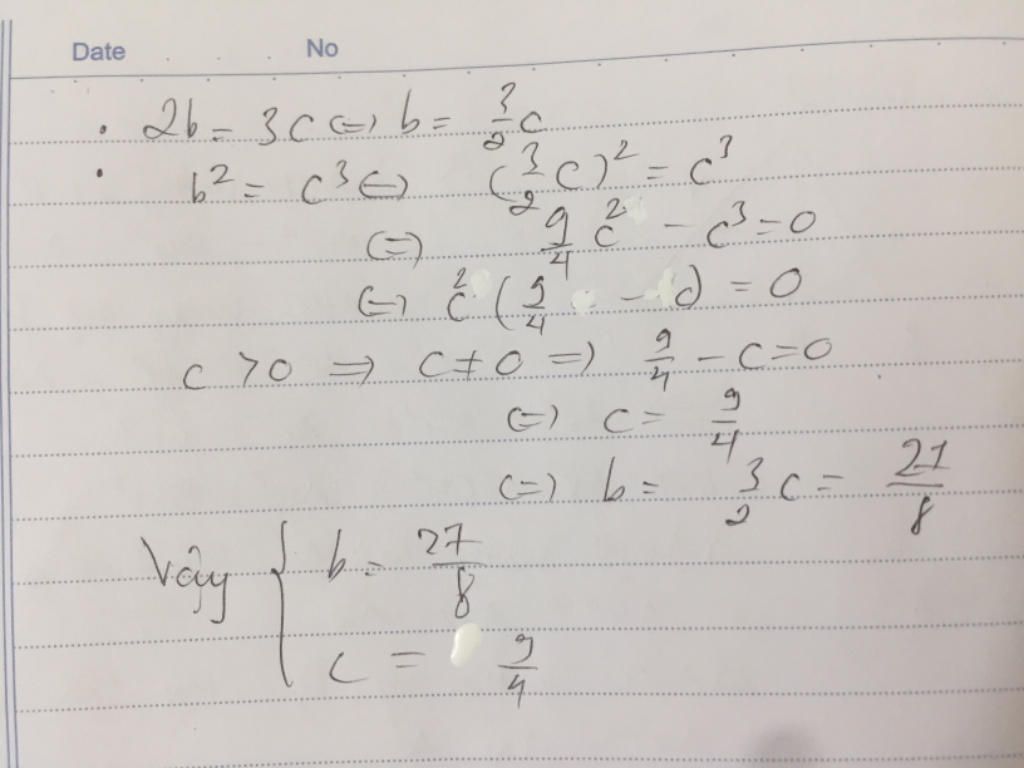 Date No
. 2b = 3c <=> b = 3/2 c
. b² = c³ <=> (3/2 c)² = c³
<=> 9/4 c² - c³ = 0
<=> c² (9/4 - c) = 0
c > 0 => c ≠ 0 => 9/4 - c = 0
<=> c = 9/4
<=> b = 3/2 c = 27/8
Vậy { b = 27/8
c = 9/4